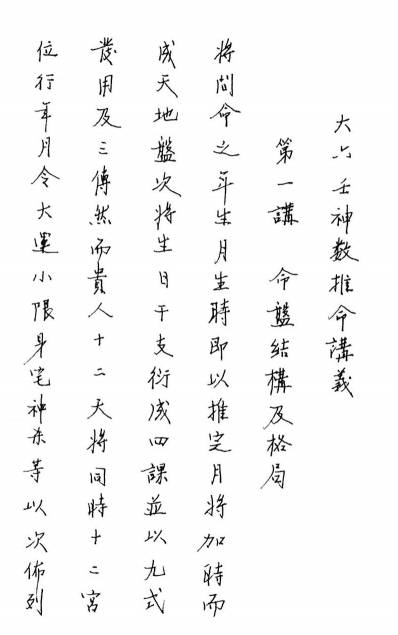 大六壬神数推命講義
第一講 命盤結構及格局
將问命之年生月生時即以推定月將加時而
成天地盤次將生日干支衍成四課並以九式
發用及三傳然而貴人十二天將同時十二宮
位行年月令大運小限身宅神杀等以次佈列